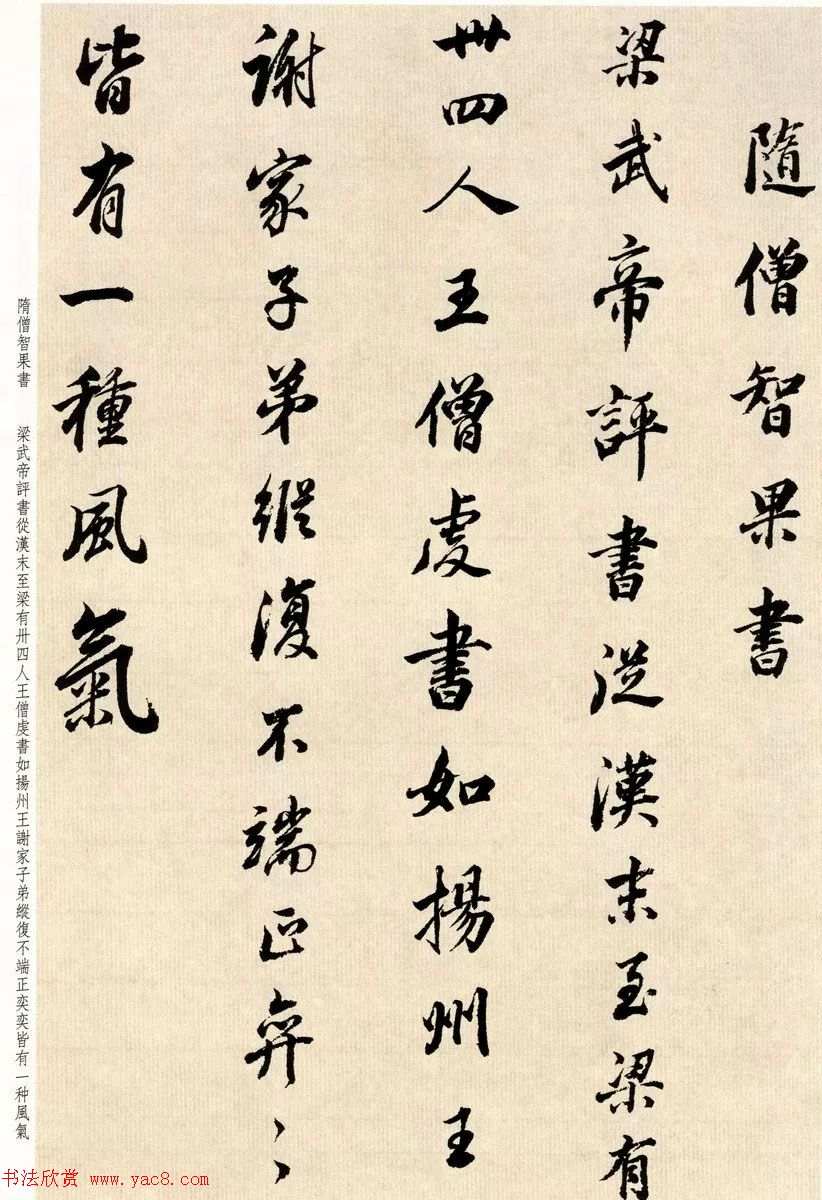 隨僧智果書
梁武帝評書從漢末至梁有
卅四人王僧虔書如揚州王
謝家子弟縱復不端正奕〻
皆有一種風氣
隋僧智果書 梁武帝評書從漢末至梁有卅四人王僧虔書如揚州王謝家子弟縱復不端正奕奕皆有一种風氣
书法欣赏 www.yac8.com